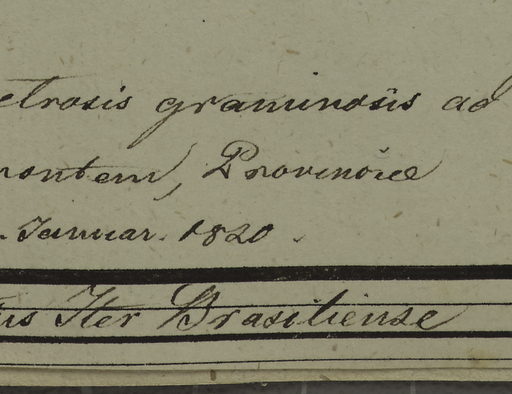 etrosis graminosis ad
montem, Provinciae
Januar. 1820.
ius Iter Brasiliense